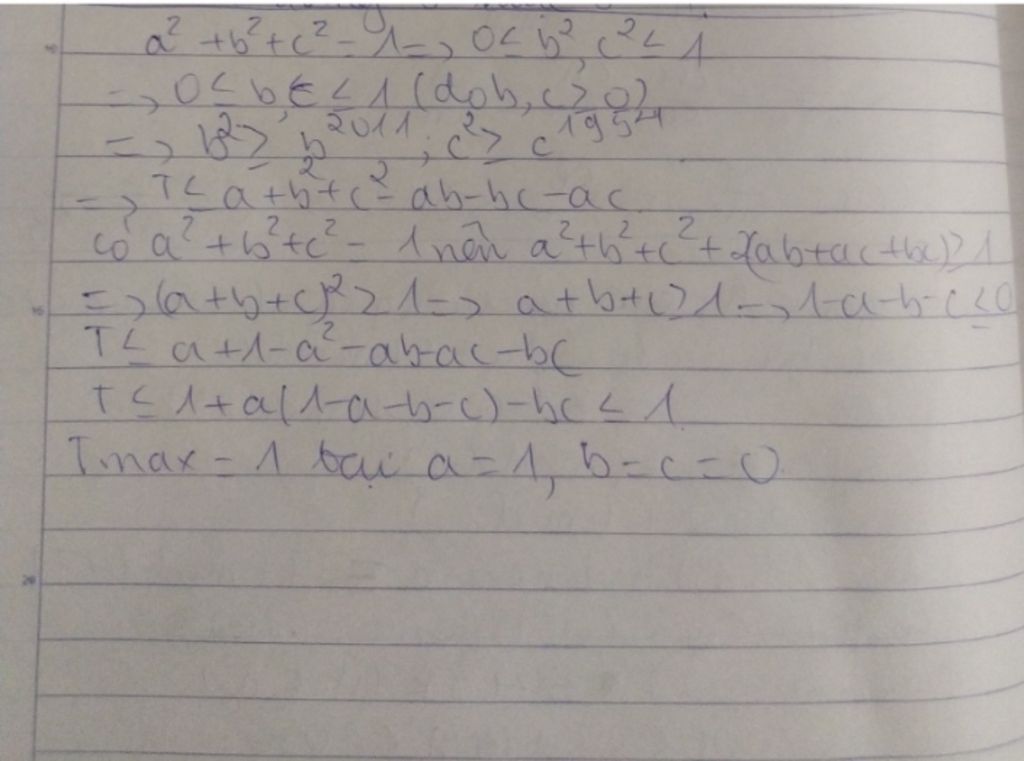 a² + b² + c² = 1 => 0 ≤ b², c² ≤ 1
=> 0 ≤ b, c ≤ 1 (do b, c ≥ 0)
=> b² ≥ b²⁰¹¹; c² ≥ c¹⁹⁵⁴
=> T ≤ a + b² + c² - ab - bc - ac
có a² + b² + c² = 1 nên a² + b² + c² + 2(ab + ac + bc) ≥ 1
=> (a + b + c)² ≥ 1 => a + b + c ≥ 1 => 1 - a - b - c ≤ 0
T ≤ a + 1 - a² - ab - ac - bc
T ≤ 1 + a(1 - a - b - c) - bc ≤ 1
Tmax = 1 tại a = 1, b = c = 0
20